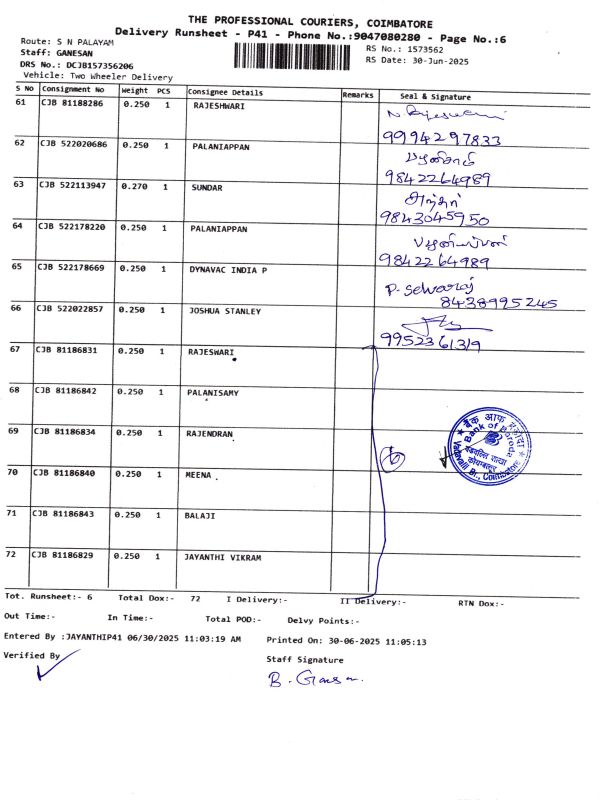 THE PROFESSIONAL COURIERS, COIMBATORE
Delivery Runsheet - P41 - Phone No.:9047080280 - Page No.:6
Route: S N PALAYAM
RS No.: 1573562
Staff: GANESAN
RS Date: 30-Jun-2025
DRS No.: DCJB157356206
Vehicle: Two Wheeler Delivery
S NO Consignment No Weight PCS Consignee Details Remarks Seal & Signature
61 CJB 81188286 0.250 1 RAJESHWARI
9994297833
62 CJB 522020686 0.250 1 PALANIAPPAN
9842264989
63 CJB 522113947 0.270 1 SUNDAR
9843045950
64 CJB 522178220 0.250 1 PALANIAPPAN
9842264989
65 CJB 522178669 0.250 1 DYNAVAC INDIA P P. Selvaraj
8438995245
66 CJB 522022857 0.250 1 JOSHUA STANLEY
9952361319
67 CJB 81186831 0.250 1 RAJESWARI
68 CJB 81186842 0.250 1 PALANISAMY
69 CJB 81186834 0.250 1 RAJENDRAN
6
बैंक ऑफ़ बड़ौदा
Bank of Baroda
Vadavalli Br., Coimbatore
70 CJB 81186840 0.250 1 MEENA
71 CJB 81186843 0.250 1 BALAJI
72 CJB 81186829 0.250 1 JAYANTHI VIKRAM
Tot. Runsheet:- 6 Total Dox:- 72 I Delivery:- II Delivery:- RTN Dox:-
Out Time:- In Time:- Total POD:- Delvy Points:-
Entered By :JAYANTHIP41 06/30/2025 11:03:19 AM Printed On: 30-06-2025 11:05:13
Verified By
Staff Signature